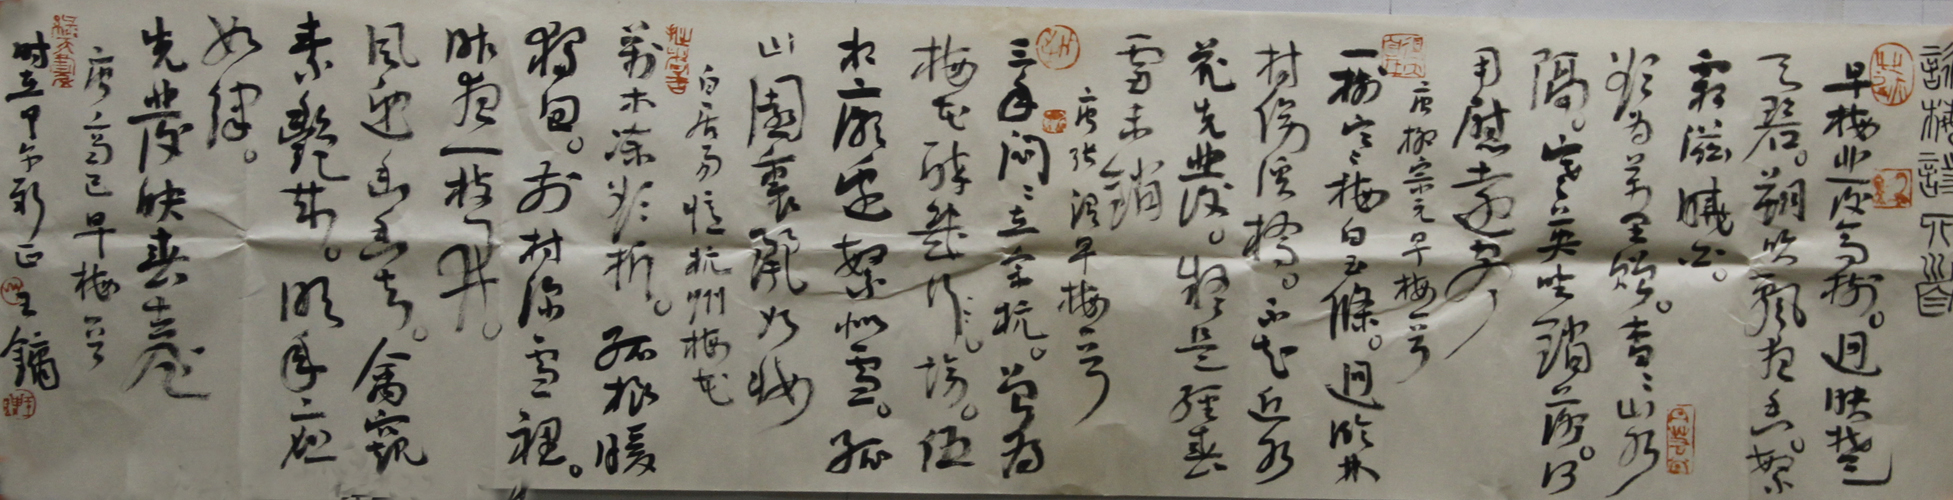 詠梅詩首
早梅發高樹。迥映楚
天碧。朔吹飄夜香。繁
霜滋曉白。
欲為萬里贈。杳〻山水
隔。寒英坐銷落。何
用慰遠客
唐柳宗元早梅一首
一樹寒梅白玉條。迥臨林
村傍溪橋。不知近水
花先發。疑是經春
雪未銷
唐張謂早梅一首
三年悶〻在余杭。曾為
梅花醉幾場。伍
相廟邊繁似雪。孤
山園裏麗如妝
白居易憶杭州梅花
萬木凍欲折。孤根暖
獨回。前村深雪裡。
昨夜一枝開。
風遞幽香去。禽窺
素艷來。明年應
如律。
先發映春臺
唐齊己早梅一首
時在甲午新正 王鏞